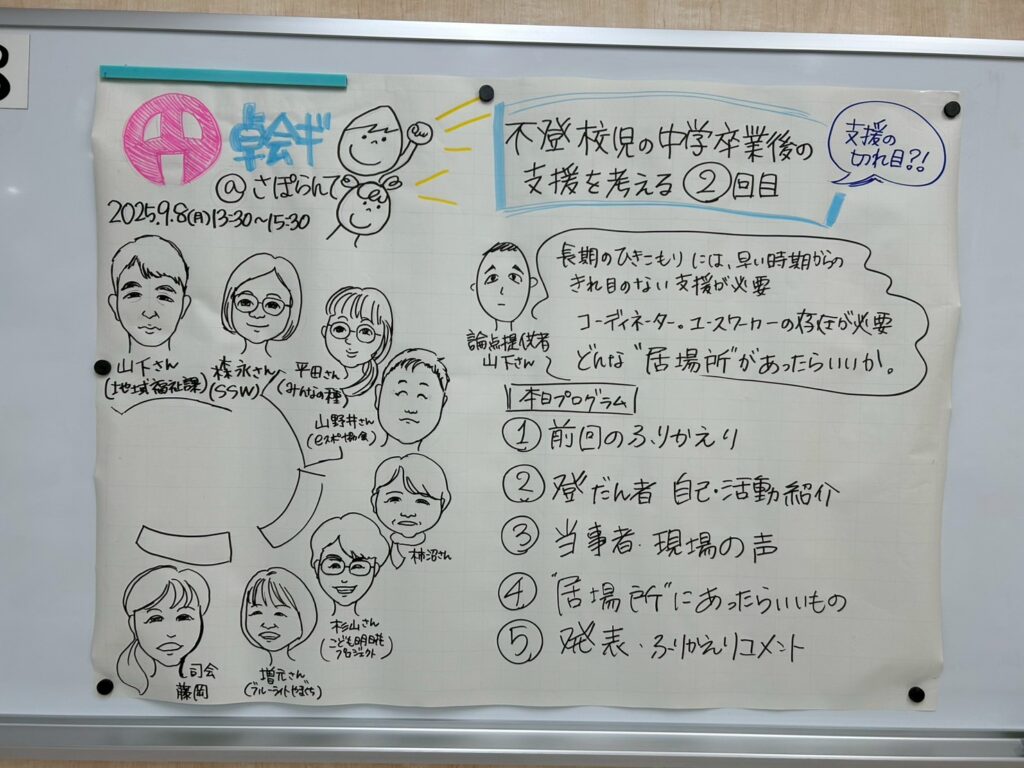 円卓会ギ
@さぽらんて
2025.9.8(月)13:30~15:30
不登校児の中学卒業後の
支援を考える②回目
支援の
切れ目?!
山下さん
(地域福祉課)
森永さん
(SSW)
平田さん
(みんなの種)
山野井さん
(eスポーツ協会)
柿沼さん
杉山さん
(こども明日花
プロジェクト)
増元さん
(ブルーライトやまぐち)
司会
藤岡
論点提供者
山下さん
長期のひきこもりには、早い時期からの
きれ目のない支援が必要
コーディネーター。ユースワーカーの存在が必要
どんな"居場所"があったらいいか。
本日プログラム
① 前回のふりかえり
② 登だん者 自己・活動紹介
③ 当事者・現場の声
④ "居場所"にあったらいいもの
⑤ 発表・ふりかえりコメント